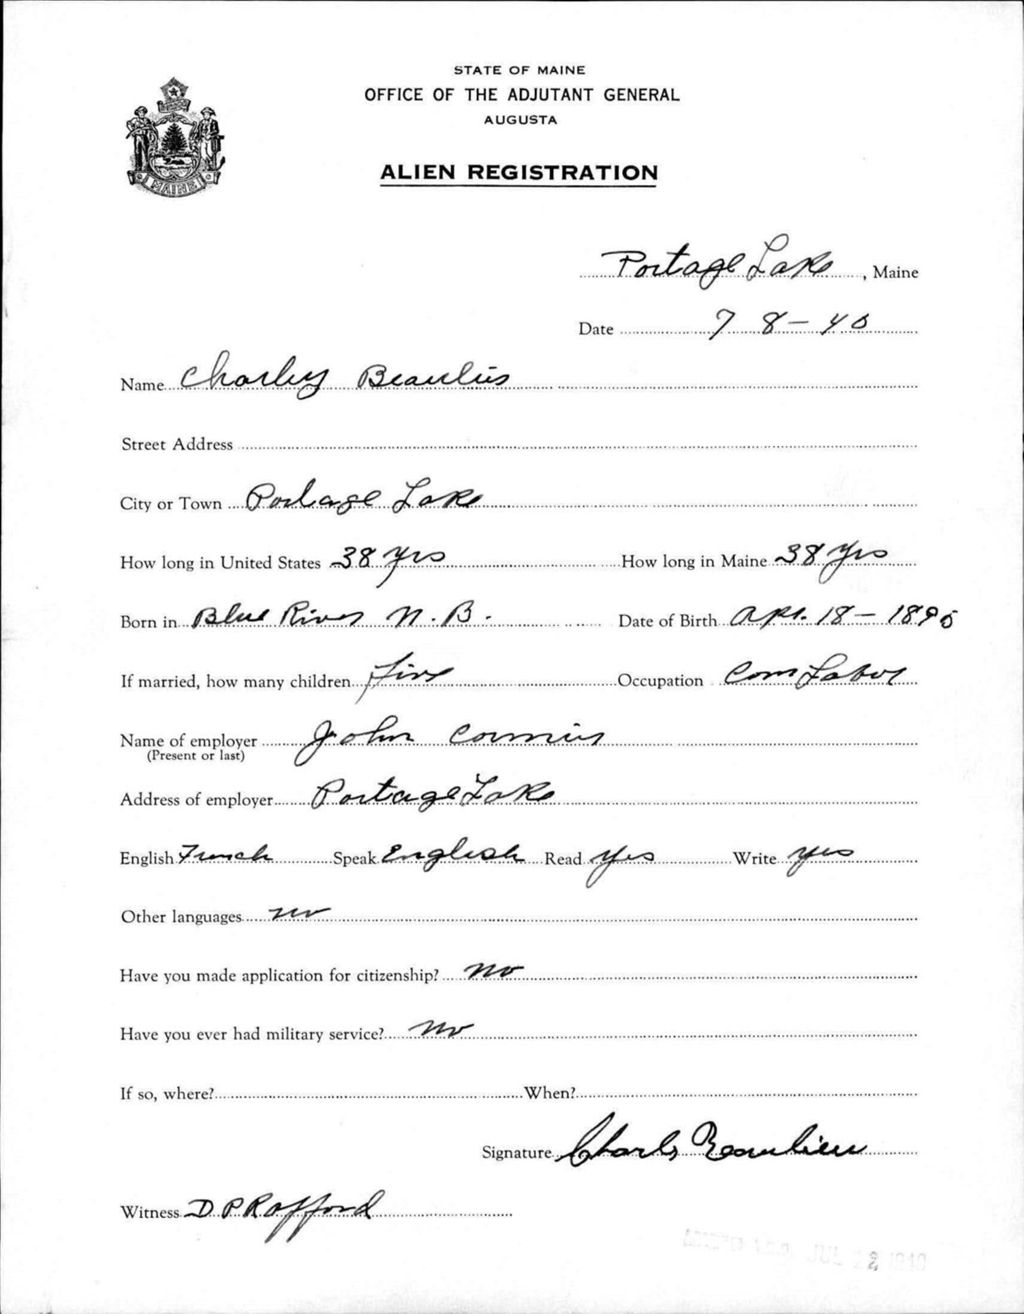 STATE OF MAINE
OFFICE OF THE ADJUTANT GENERAL
AUGUSTA
ALIEN REGISTRATION
MAINE
Portage Lake, Maine
Date 7 8-40
Name Charley Beaulius
Street Address
City or Town Portage Lake
How long in United States 38 yrs How long in Maine 38 yrs
Born in Blue River N.B. Date of Birth Apr. 18-1895
If married, how many children five Occupation Com Labor
Name of employer John
(Present or last)
Address of employer Portage Lake
English French Speak English Read Yes Write yes
Other languages no
Have you made application for citizenship? No
Have you ever had military service? No
If so, where? When?
Signature Charls Beaulieu
Witness D P Rafford
JUL 22 1940